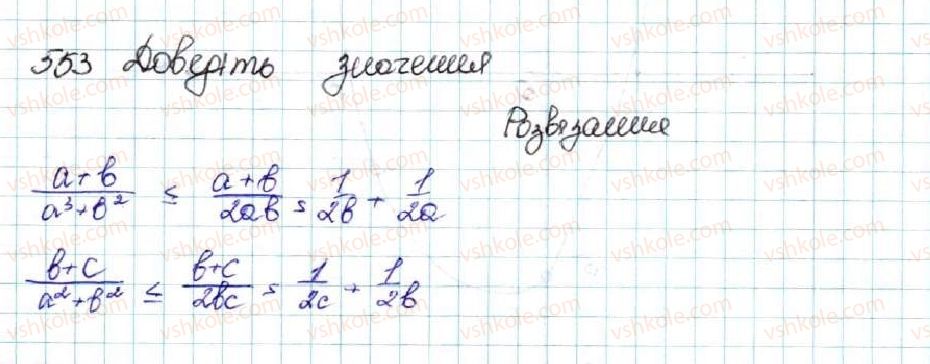 553 Доведіть значення
Розвязання
a+b / a³+b² ≤ a+b / 2ab = 1/2b + 1/2a
b+c / a²+b² ≤ b+c / 2bc = 1/2c + 1/2b